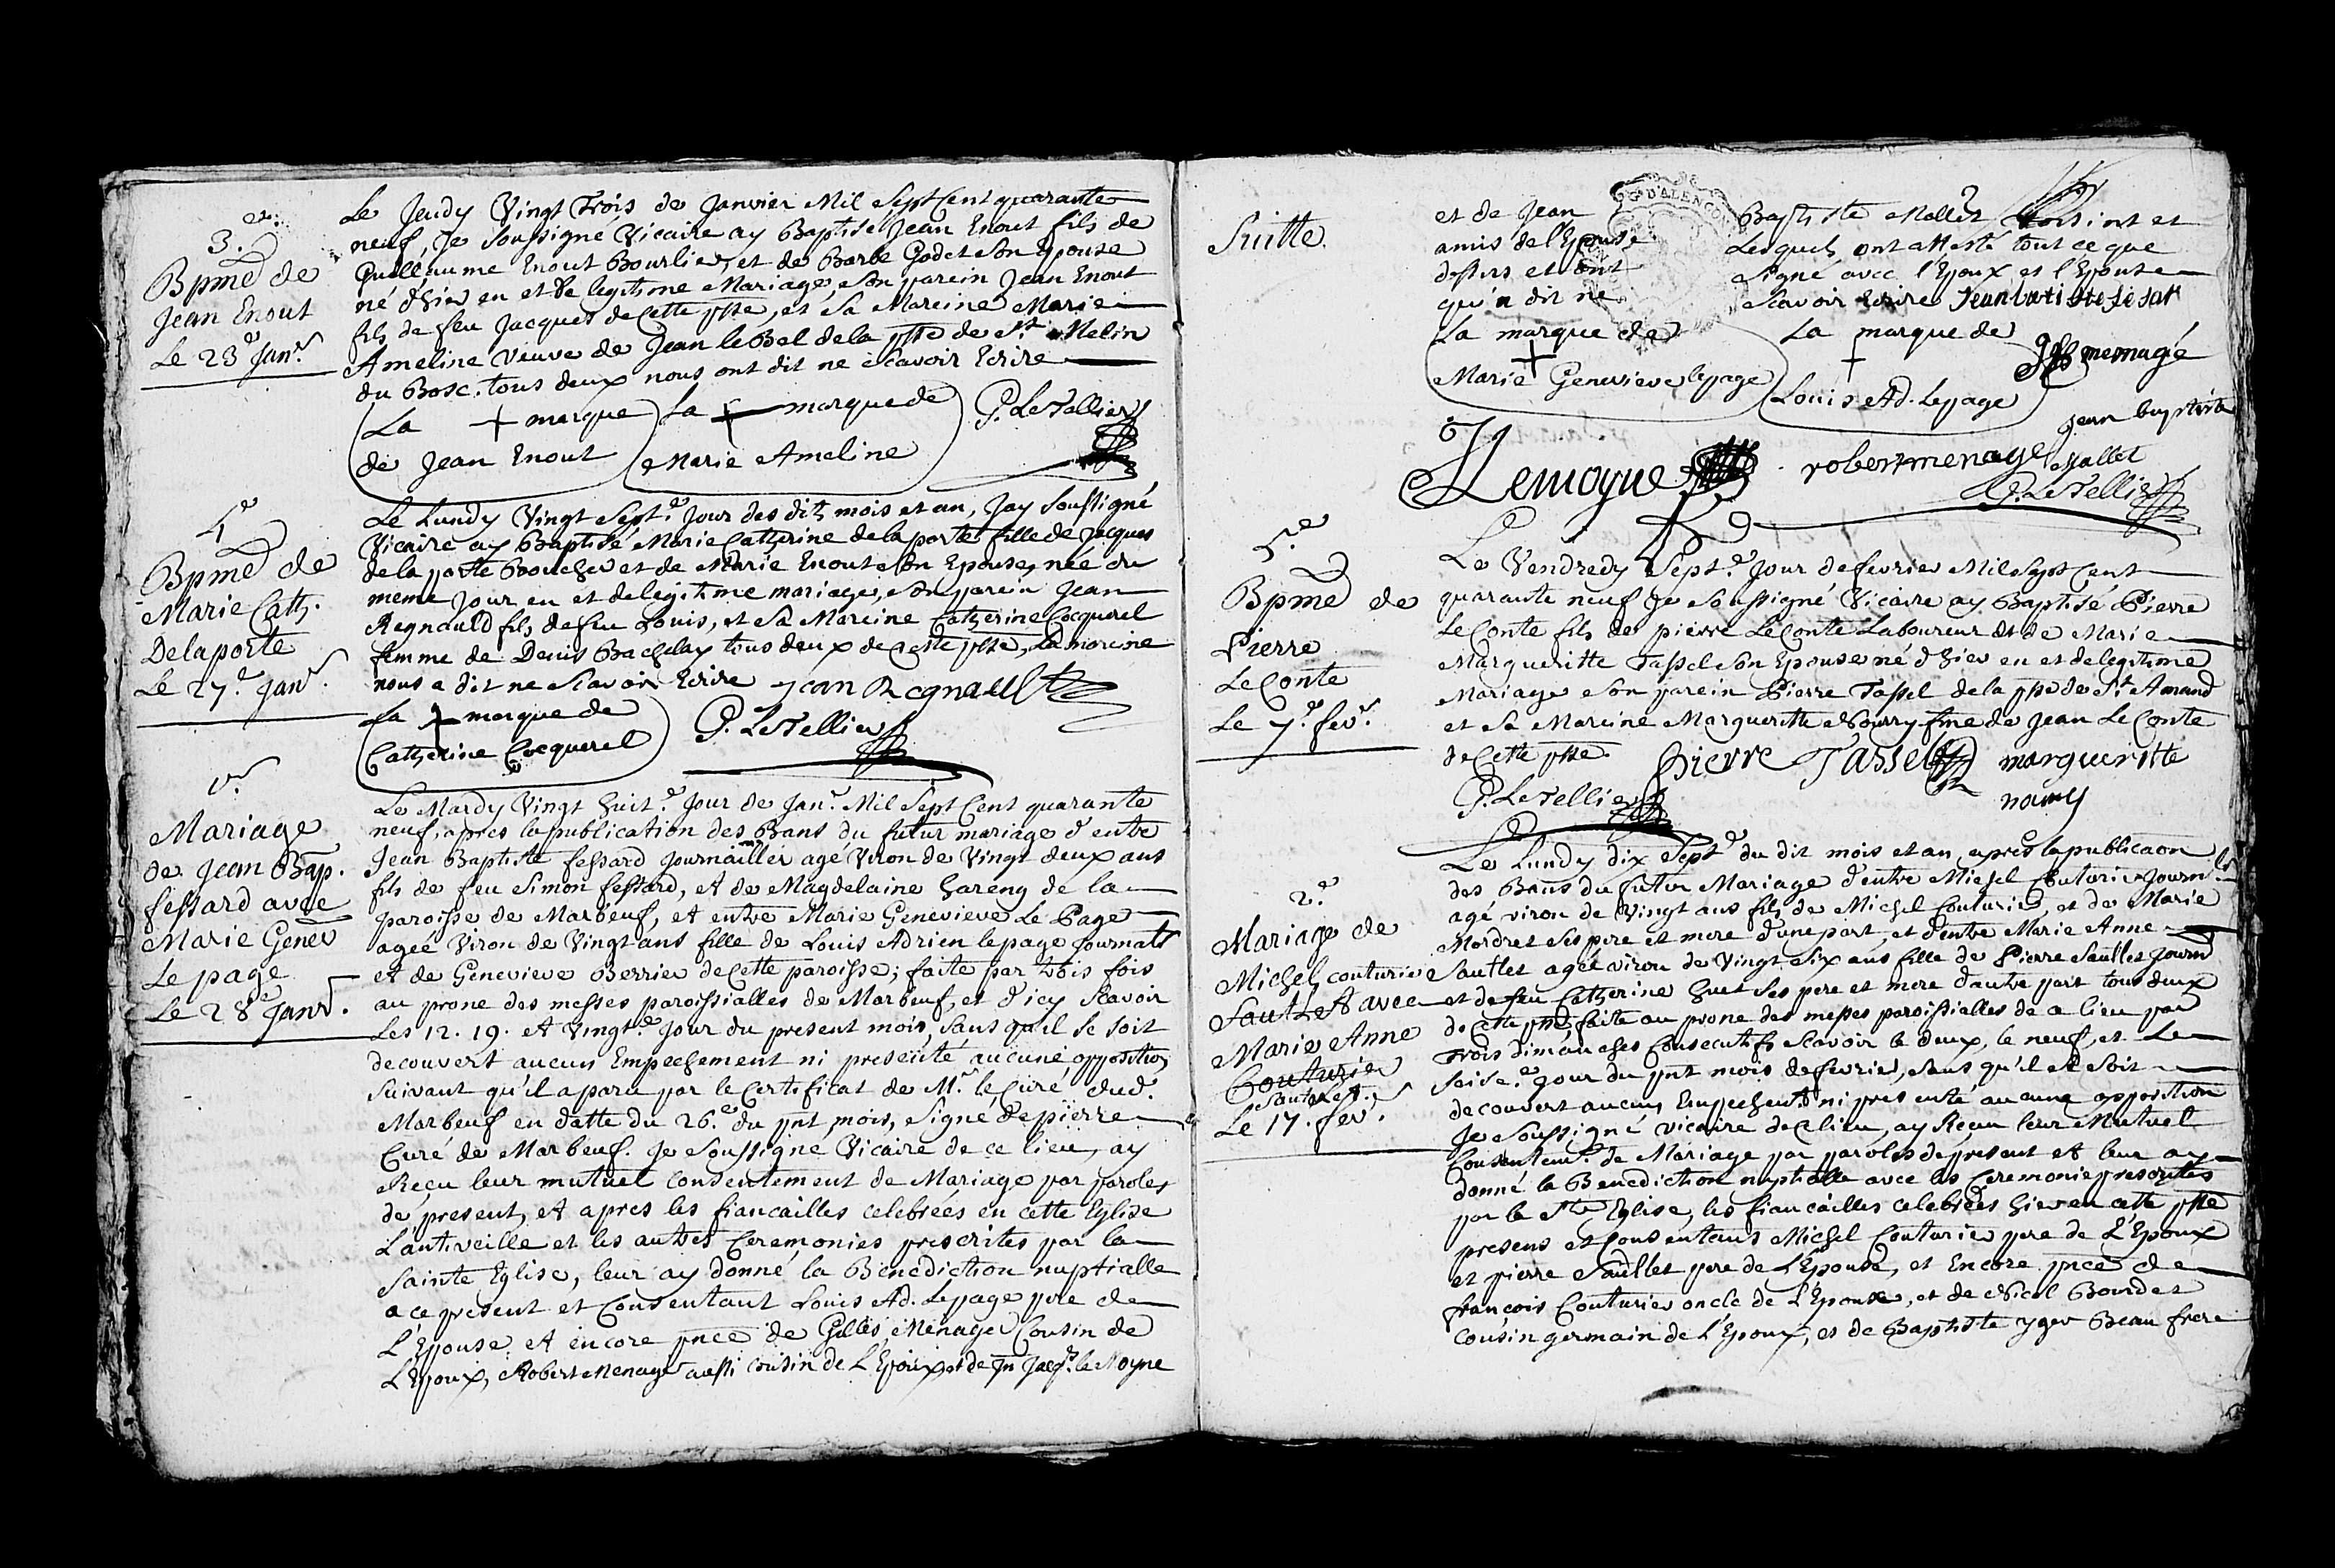 3.e
Bpme de
Jean Enout
Le 23e Janr.
Le Jeudy Vingt Trois de Janvier Mil Sept Cent quarante
neuf, Je Soussigné Vicaire ay Baptisé Jean Enout fils de
Guilleaume Enout Bourlier, et de Barbe Godet Son Epouse
né d'hier en et de legitime Mariage, Son parein Jean Enout
fils de feu Jacques de Cette psse, et Sa Mareine Marie
Ameline Veuve de Jean le Bel de la psse de St. Melin
du Bosc. tous deux nous ont dit ne Scavoir Ecrire
La + marque
de Jean Enout
La + marque de
Marie Ameline
G. LeTellier
4e
Bpme de
Marie Cath.
Delaporte
Le 27e. Janr.
Le Lundy Vingt Sept.e Jour des dits mois et an, Jay Soussigné
Vicaire ay Baptisé Marie Catherine de la porte fille de Jacques
de la porte Boucher et de Marie Enout Son Epouse, née du
meme Jour en et de legitime mariage, Son parein Jean
Regnauld fils de feu Louis, et Sa Mareine Catherine Cocquerel
femme de Denis Bachelay tous deux de cette psse, la mareine
nous a dit ne Scavoir Ecrire Jean Regnault
La + marque de
Catherine Cocquerel
G. LeTellier
1r.
Mariage
de Jean Bap.
fessard avec
Marie Genev
Le page
Le 28e Janv.
Le Mardy Vingt huit.e Jour de Jan.r Mil Sept Cent quarante
neuf, apres la publication des Bans du futur mariage d'entre
Jean Baptiste fessard Journaillier agé Viron de Vingt deux ans
fils de feu Simon fessard, et de Magdelaine hareng de la
paroisse de Marbeuf, et entre Marie Genevieve Le Page
agée Viron de Vingt ans fille de Louis Adrien lepage Journalr
et de Genevieve Berrier de Cette paroisse; faite par trois fois
au prone des messes paroissialles de Marbeuf, et d'icy Scavoir
Les 12. 19. et Vingt.e Jour du present mois, Sans qu'il Se soit
decouvert aucun Empechement ni presenté aucune opposition
Suivant qu'il a paru par le Certificat de Mr. le Curé dud.
Marbeuf en datte du 26.e du pnt mois, Signé Depierre
Curé de Marbeuf. Je Soussigné Vicaire de ce lieu, ay
Reçu leur mutuel Consentement de Mariage par paroles
de present, et apres les fiancailles celebrées en cette Eglise
L'antiveille et les autres Ceremonies prescrites par la
Sainte Eglise, leur ay donné la Benediction nuptialle
a ce present et Consentant Louis Ad. Lepage pere de
L'Epouse et encore pnce de Gilles Menage Cousin de
L'Epoux, Robert Menage aussi cousin de L'Epoux, et de Jn Jacq.s le Moyne
Suitte.
et de Jean Baptiste Mallet
amis de l'Epouse Lesquels ont attesté tout ce que
dessus et ont Signé avec l'Epoux et l'Epouse
qu'a dit ne Scavoir Ecrire
La marque de
+
Marie Genevieve lepage
La marque de
+
Louis Ad. Lepage
menagé
JLemoyne
robert menage
jean baptiste
Mallet
G. LeTellier
5.e
Bpme de
Pierre
LeConte
Le 7.e fevr.
Le Vendredy Sept.e Jour de fevrier Mil Sept Cent
quarante neuf Je Soussigné Vicaire ay Baptisé Pierre
LeConte fils de pierre LeConte Laboureur et de Marie
Margueritte Tassel Son Epouse né d'hier en et de legitime
Mariage Son parein Pierre Tassel de la psse de St. Amand
et Sa Mareine Margueritte Nourry fme de Jean LeConte
de Cette psse. Pierre Tassel margueritte
noury
G. LeTellier
2.e
Mariage de
Michel couturier
Sautlet avec
Marie Anne
Couturier
Sautlet.
Le 17. fevr.
Le Lundy dix Sept.e du dit mois et an, apres la publicaon
des Bans du futur Mariage d'entre Michel Couturier Journ.lr
agé viron de Vingt ans fils de Michel Couturier, et de Marie
Mordret Ses pere et mere d'une part, et d'entre Marie Anne
Sautlet agée viron de Vingt Six ans fille de Pierre Sautlet Journ
et de feu Catherine huet Ses pere et mere d'autre part tous deux
de Cette psse, faite au prone des messes paroissialles de ce lieu par
Trois dimanches Consecutifs Scavoir le deux, le neuf, et Le
Seise.e Jour du pnt mois de fevrier, Sans qu'il Se Soit
decouvert aucun Empechent ni presenté aucune opposition
Je Soussigné vicaire de ce lieu, ay Reçu leur Mutuel
Consentem.t de Mariage par paroles de present et leur ay
donné la Benediction nuptialle avec les Ceremonie prescrites
par la Ste Eglise, les fiancailles celebrées hier en cette psse
presens et consentans Michel Couturier pere de L'Epoux
et pierre Sautlet pere de L'Epouse, et Encore pnce de
françois Couturier oncle de L'Epoux, et de Nicol Bourdet
cousin germain de L'Epoux, et de Baptiste yger Beau frere